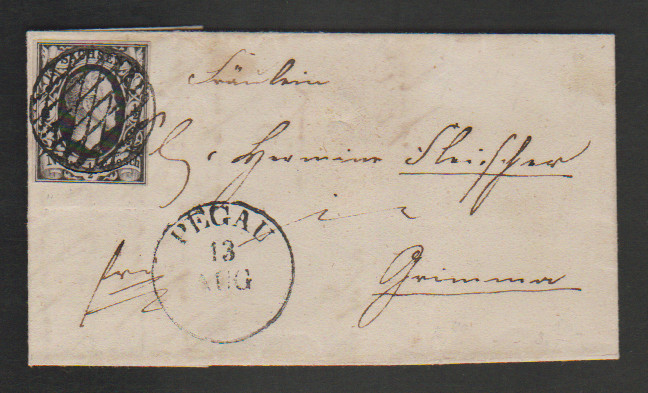 SACHSEN
Fräulein
Hermine Fleischer
in
Grimma
PEGAU
13
AUG